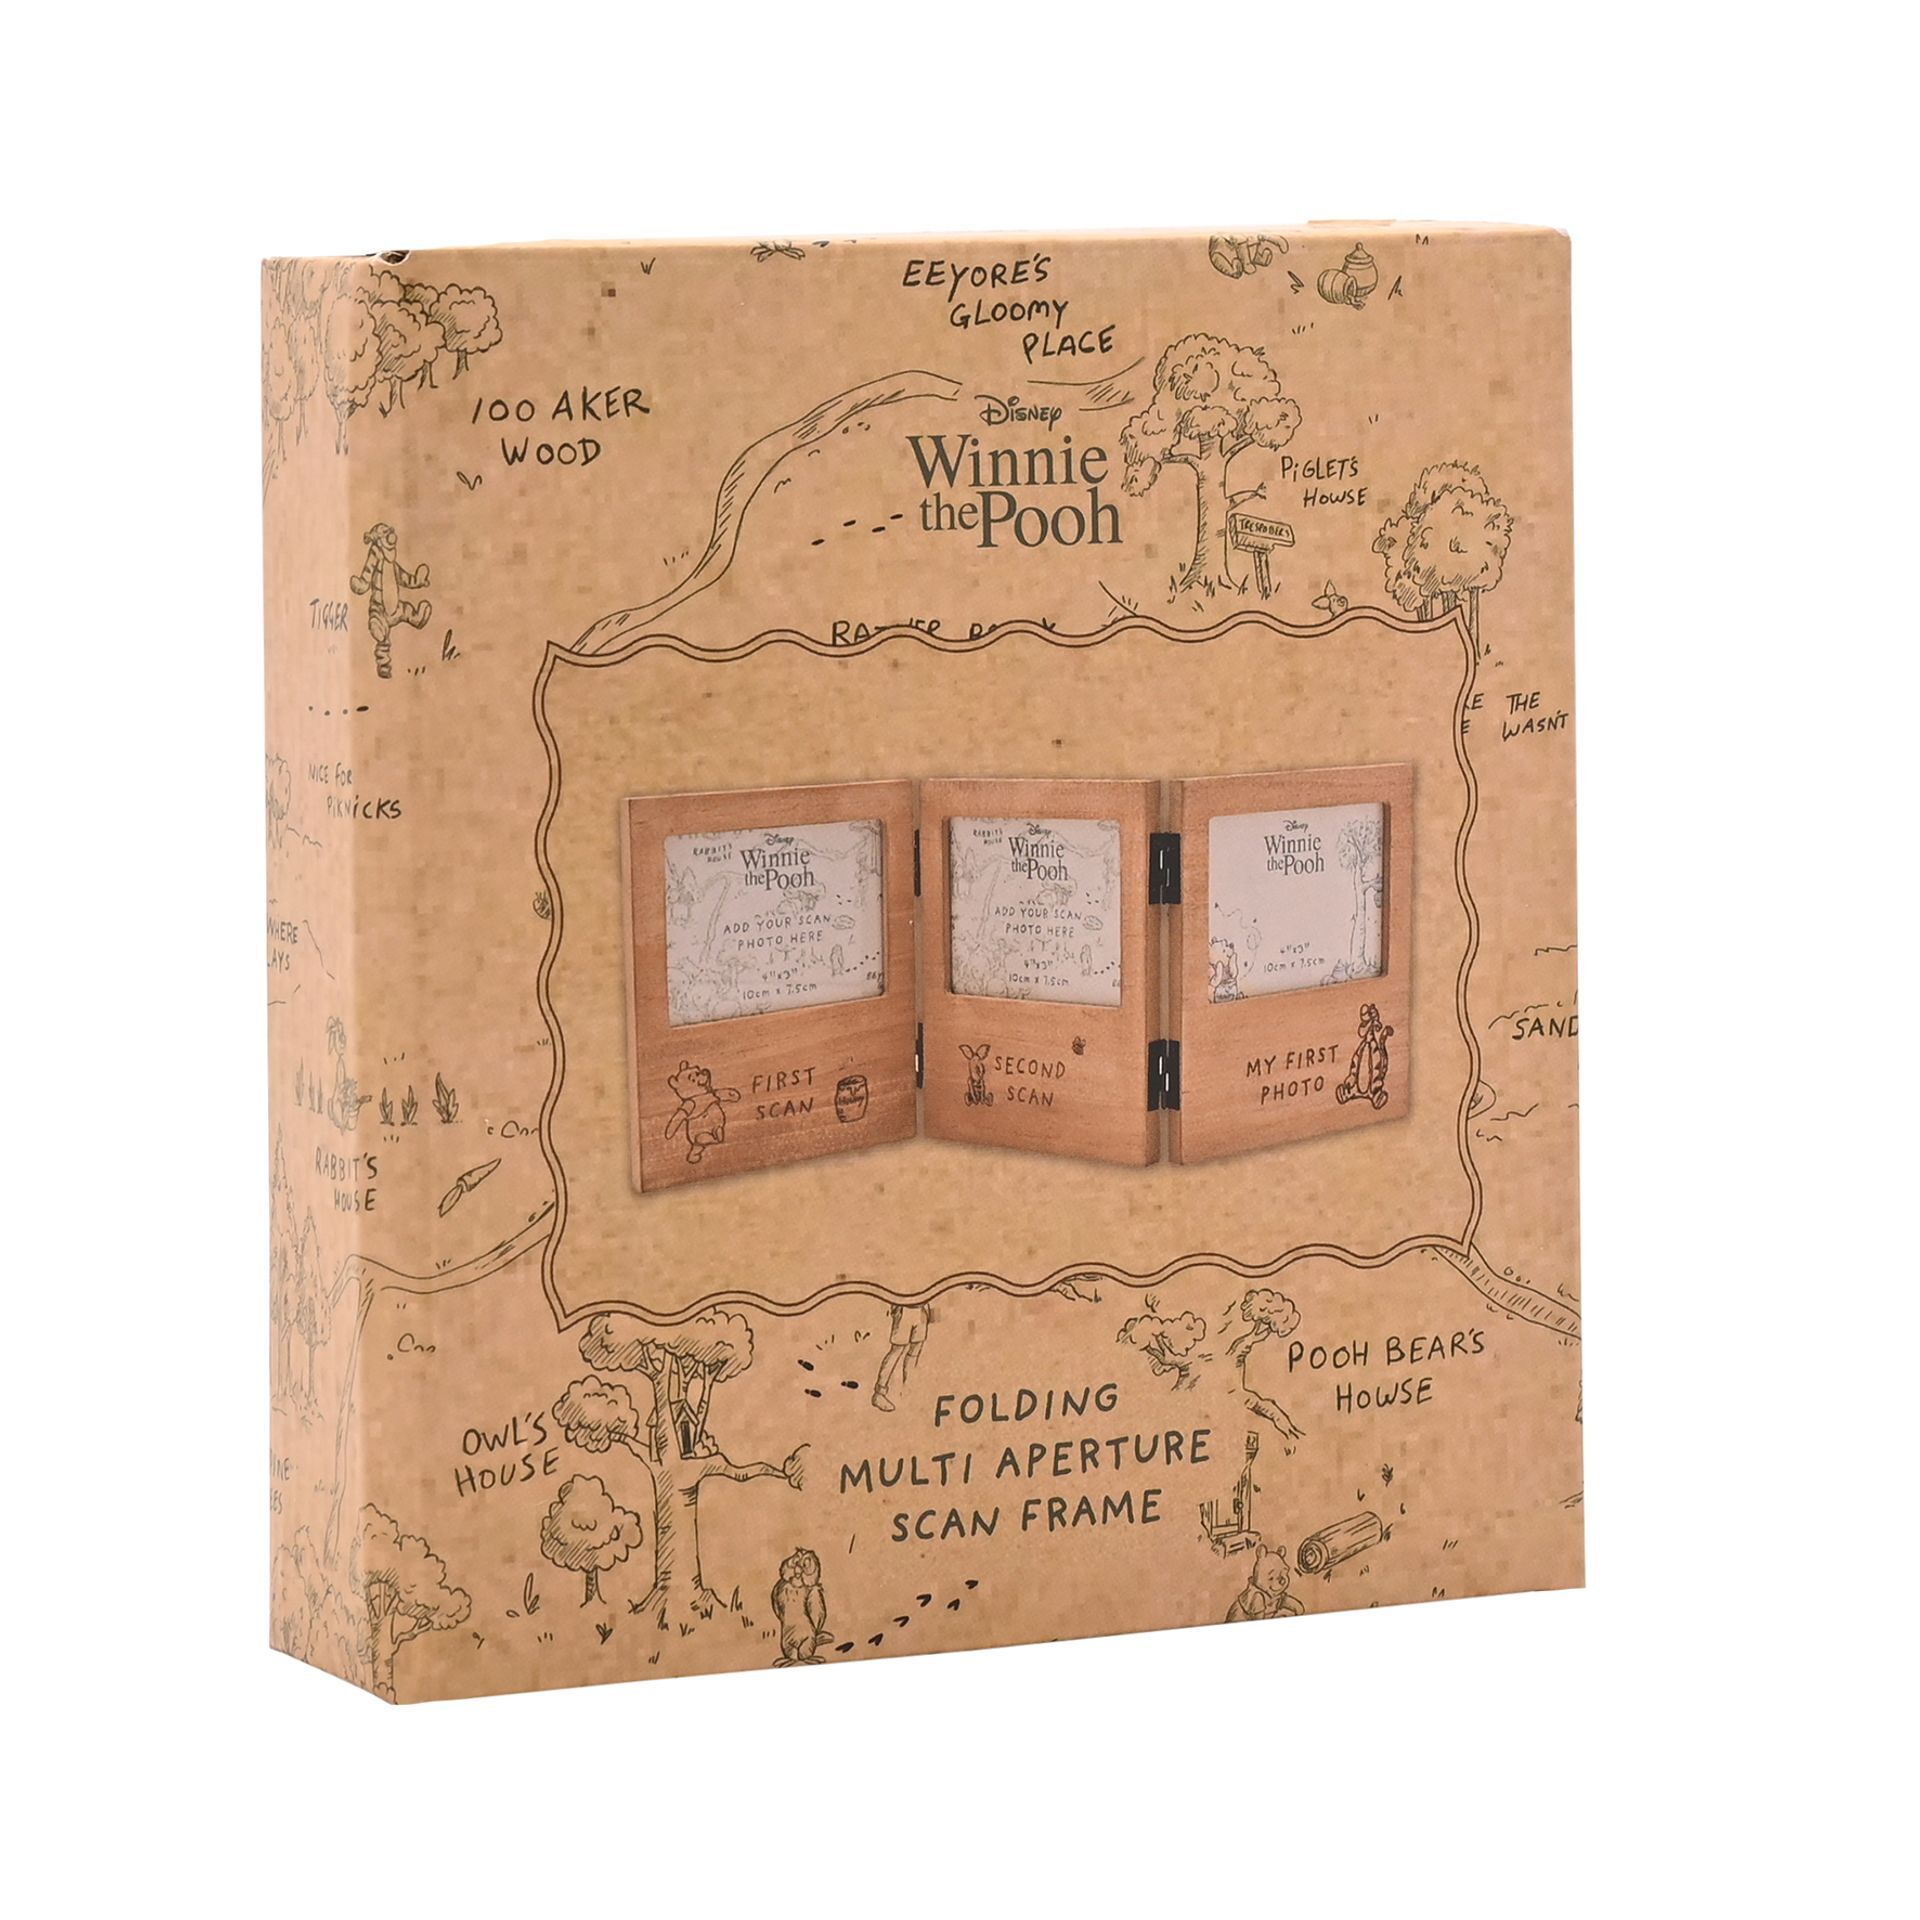 EEYORE'S
GLOOMY
PLACE
100 AKER
WOOD
DISNEY
Winnie
the Pooh
PIGLET'S
HOWSE
TRESPASSERS
TIGGER
THE
WASN'T
NICE FOR
PIKNICKS
RABBIT'S
HOUSE
Disney
Winnie
the Pooh
ADD YOUR SCAN
PHOTO HERE
4"x3"
10cm x 7.5cm
FIRST
SCAN
Hunny
RABBIT'S
HOUSE
Disney
Winnie
the Pooh
ADD YOUR SCAN
PHOTO HERE
4"x3"
10cm x 7.5cm
SECOND
SCAN
Disney
Winnie
the Pooh
4"x3"
10cm x 7.5cm
MY FIRST
PHOTO
WHERE
LAYS
SAND
RABBIT'S
HOUSE
POOH BEAR'S
HOWSE
OWL'S
HOUSE
FOLDING
MULTI APERTURE
SCAN FRAME